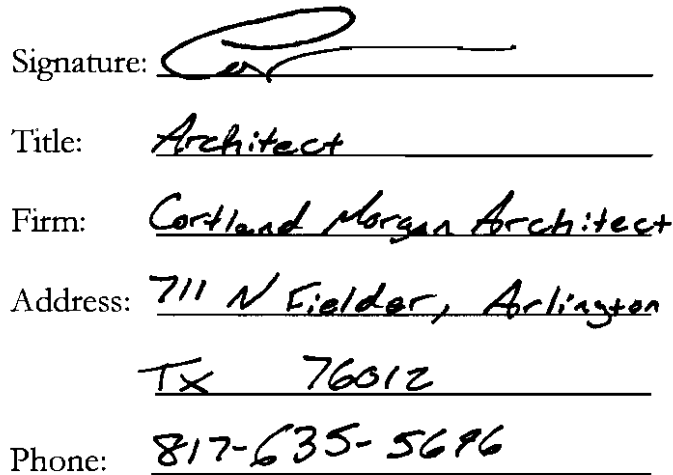 Signature:
Title: Architect
Firm: Cortland Morgan Architect
Address: 711 N Fielder, Arlington
TX 76012
Phone: 817-635-5696